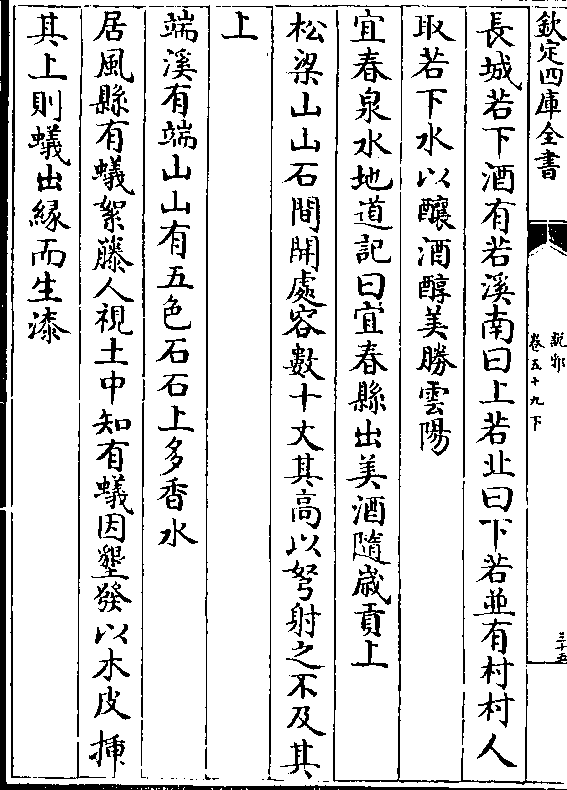 欽定四庫全書
說郛
卷五十九下
三十五
長城若下酒有若溪南曰上若北曰下若並有村村人
取若下水以釀酒醇美勝雲陽
宜春泉水地道記曰宜春縣出美酒隨歲貢上
松梁山山石間開處容數十丈其高以弩射之不及其
上
端溪有端山山有五色石石上多香水
居風縣有蟻絮藤人視土中知有蟻因墾發以木皮揷
其上則蟻出緣而生漆